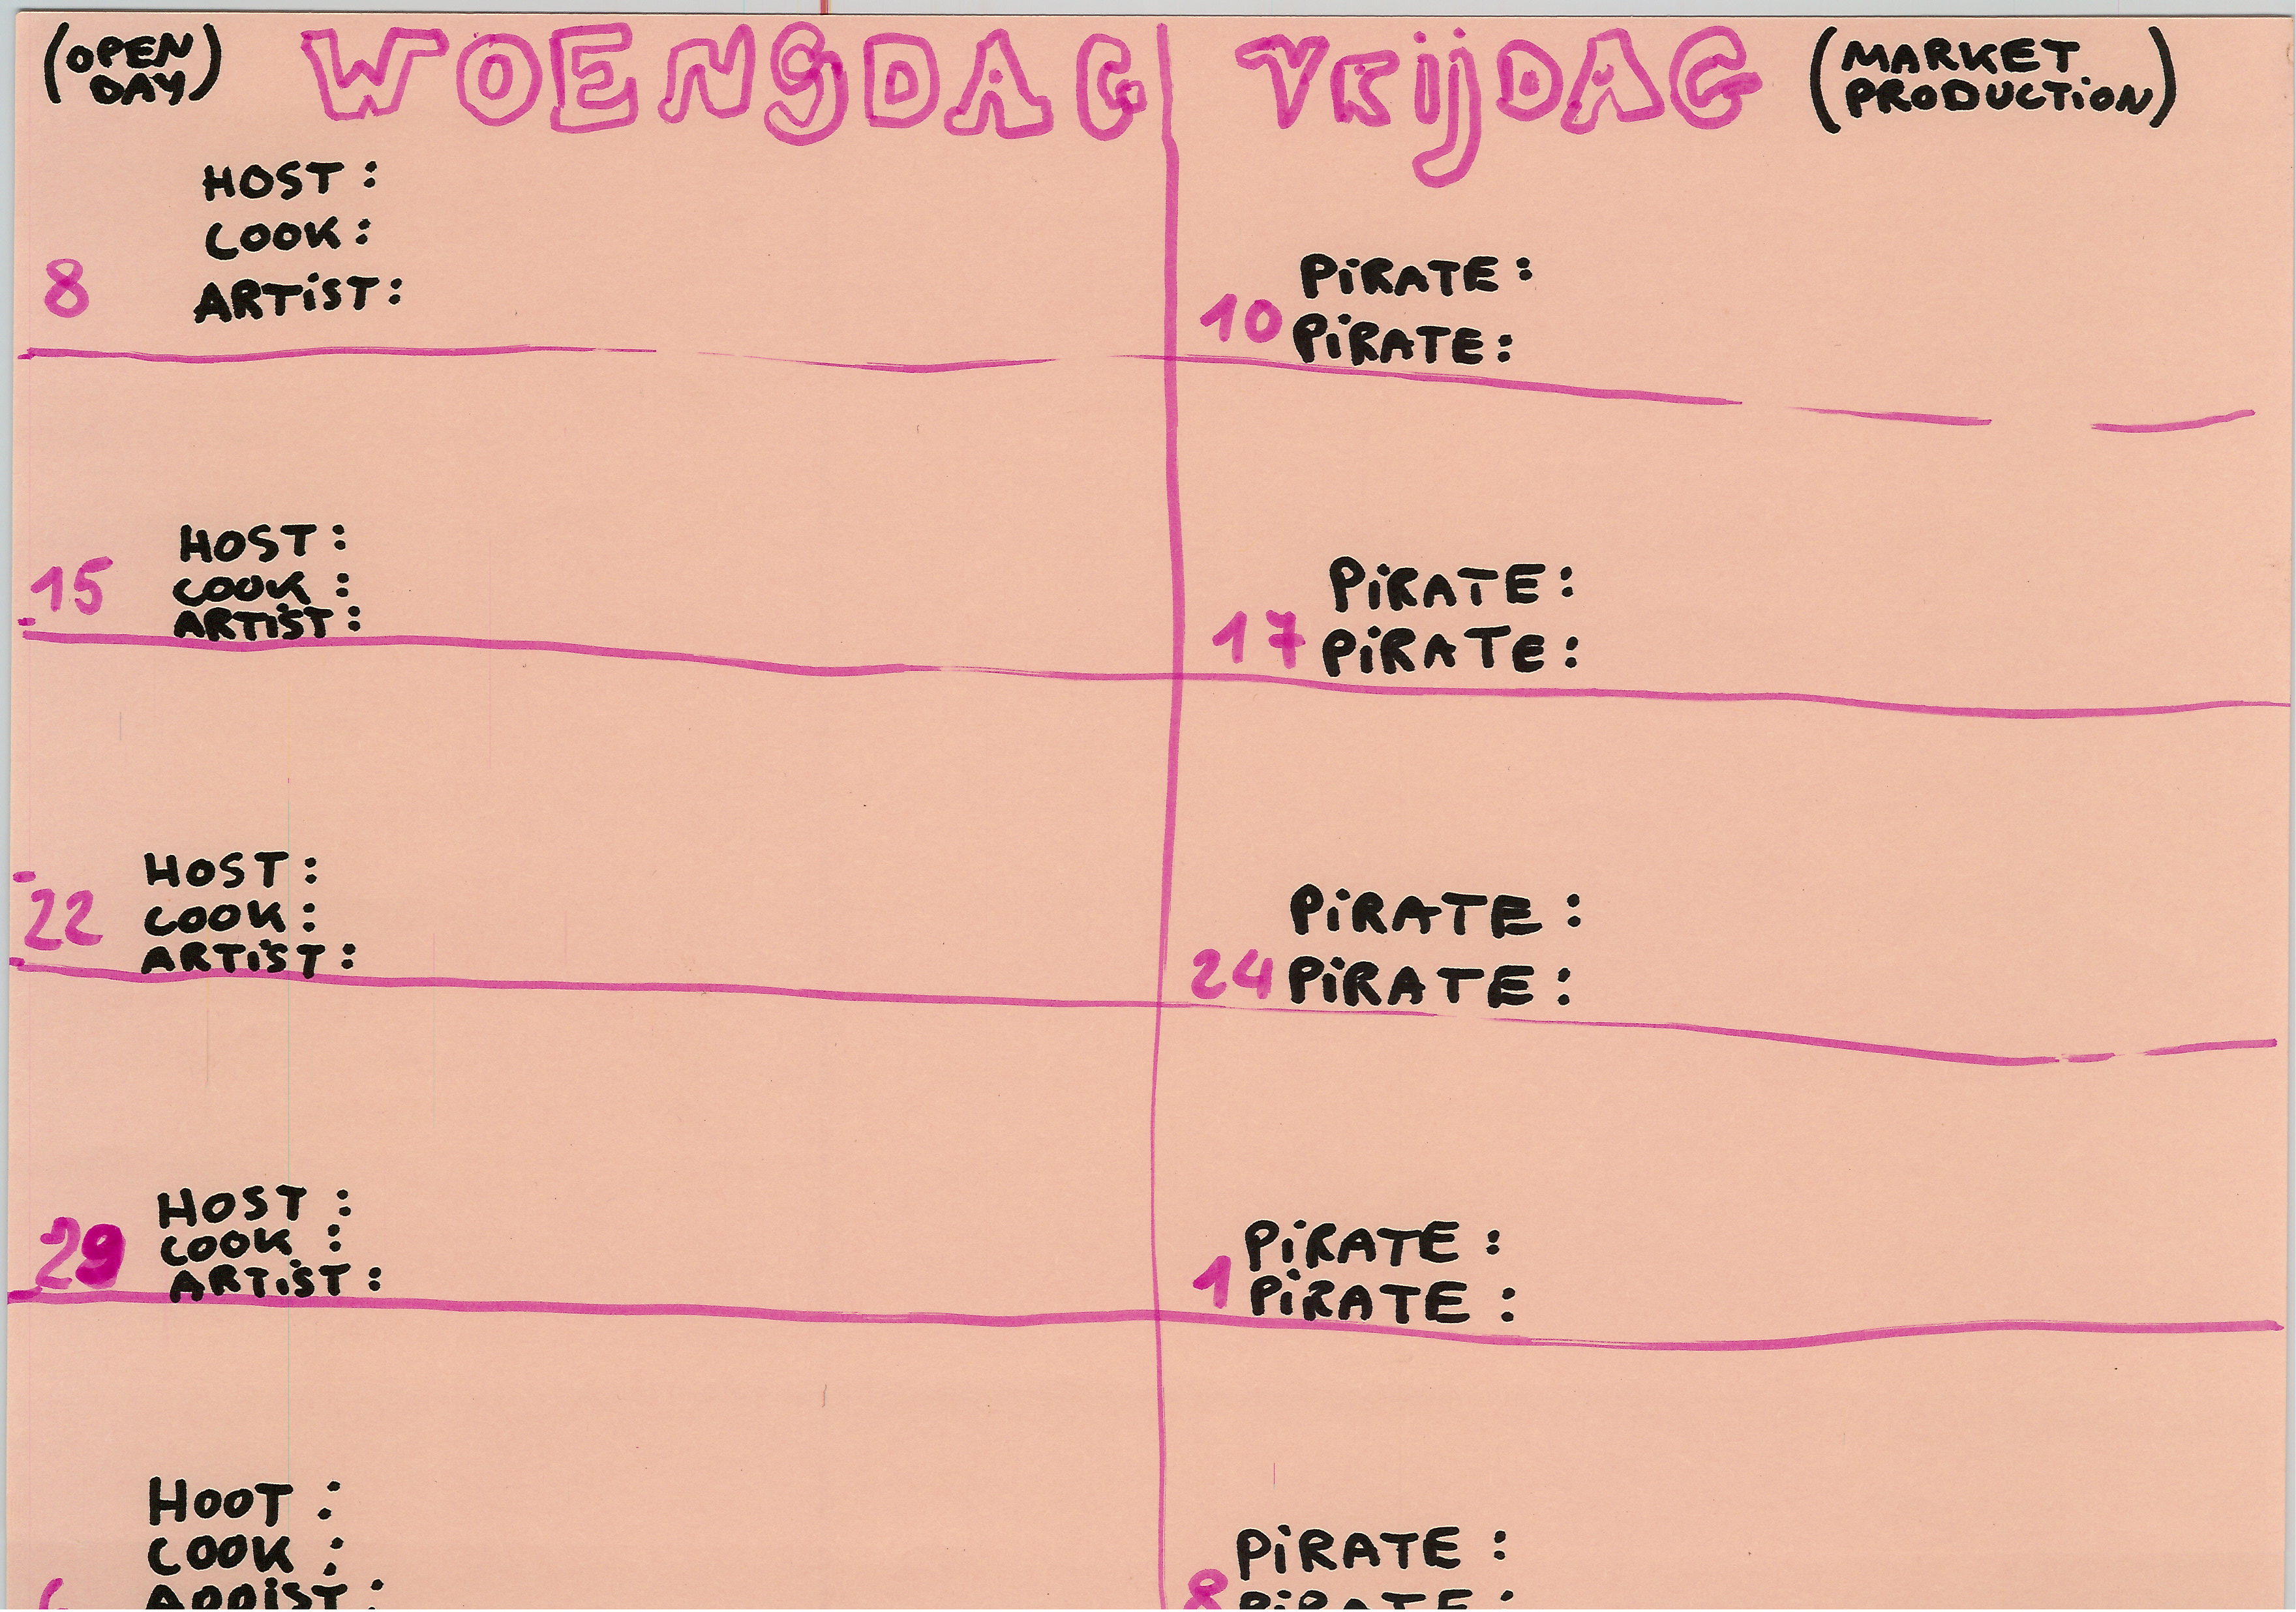 (OPEN DAY) WOENSDAG
HOST:
COOK:
8 ARTiST:
15 HOST:
COOK:
ARTiST:
22 HOST:
COOK:
ARTiST:
29 HOST:
COOK:
ARTiST:
HOOT:
COOK:
VRijDAG (MARKET PRODUCTiON)
PiRATE:
10 PiRATE:
PiRATE:
17 PiRATE:
PiRATE:
24 PiRATE:
PiRATE:
1 PiRATE:
PiRATE:
8 PiRATE: